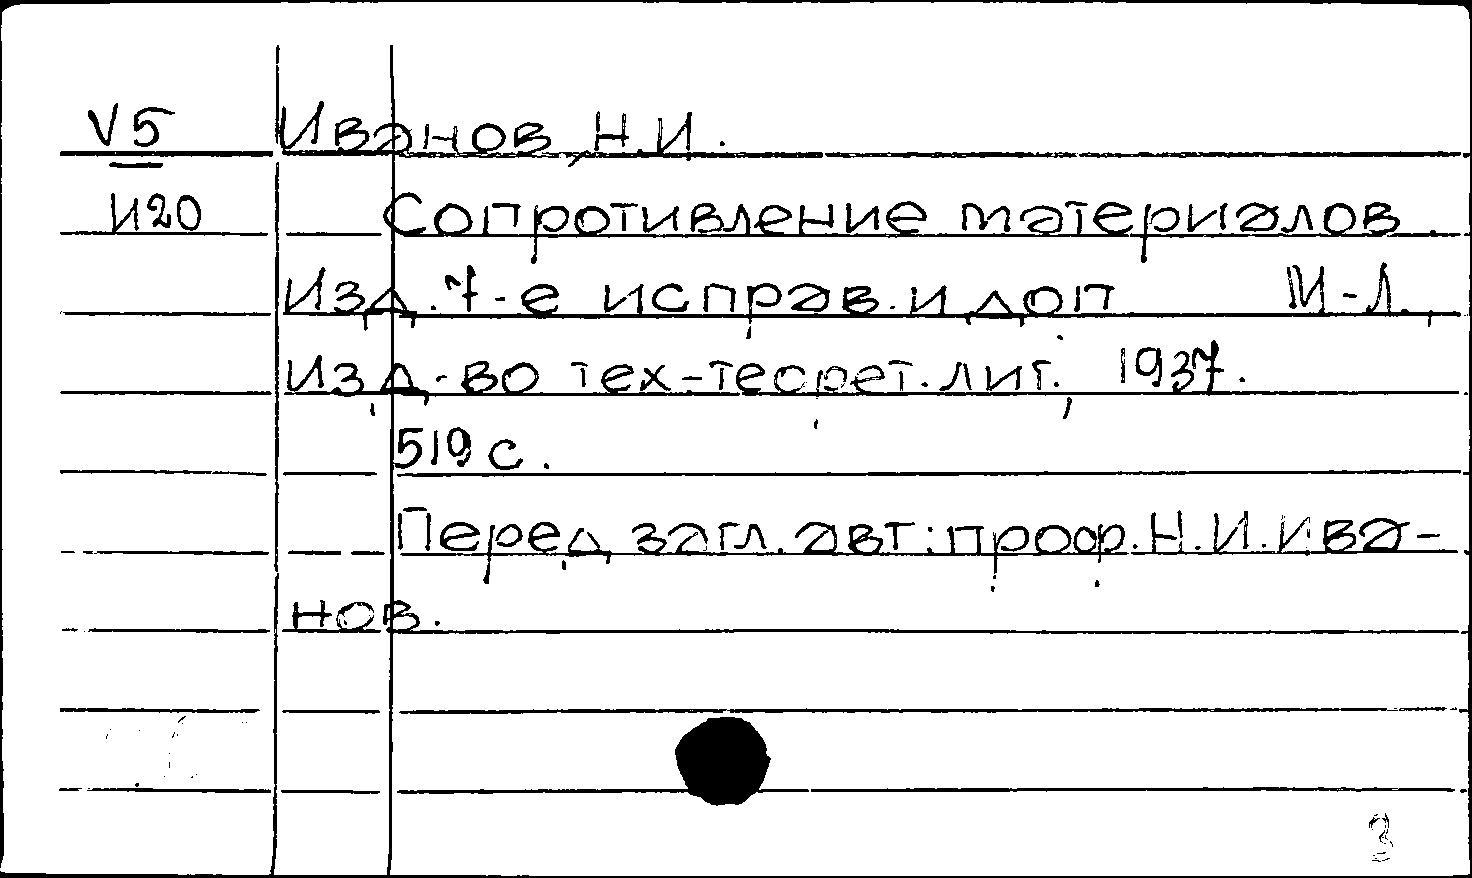 V5 Иванов, Н.И.
И20 Сопротивление материалов.
Изд. 7-е исправ. и доп М-Л.,
Изд-во тех-теорет. лит., 1937.
519 с.
Перед загл. авт: проф. Н.И. Ива-
нов.
3